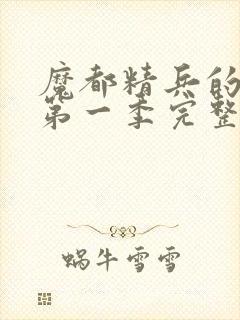 魔都精兵的
第一季完整
蜗牛雪雪